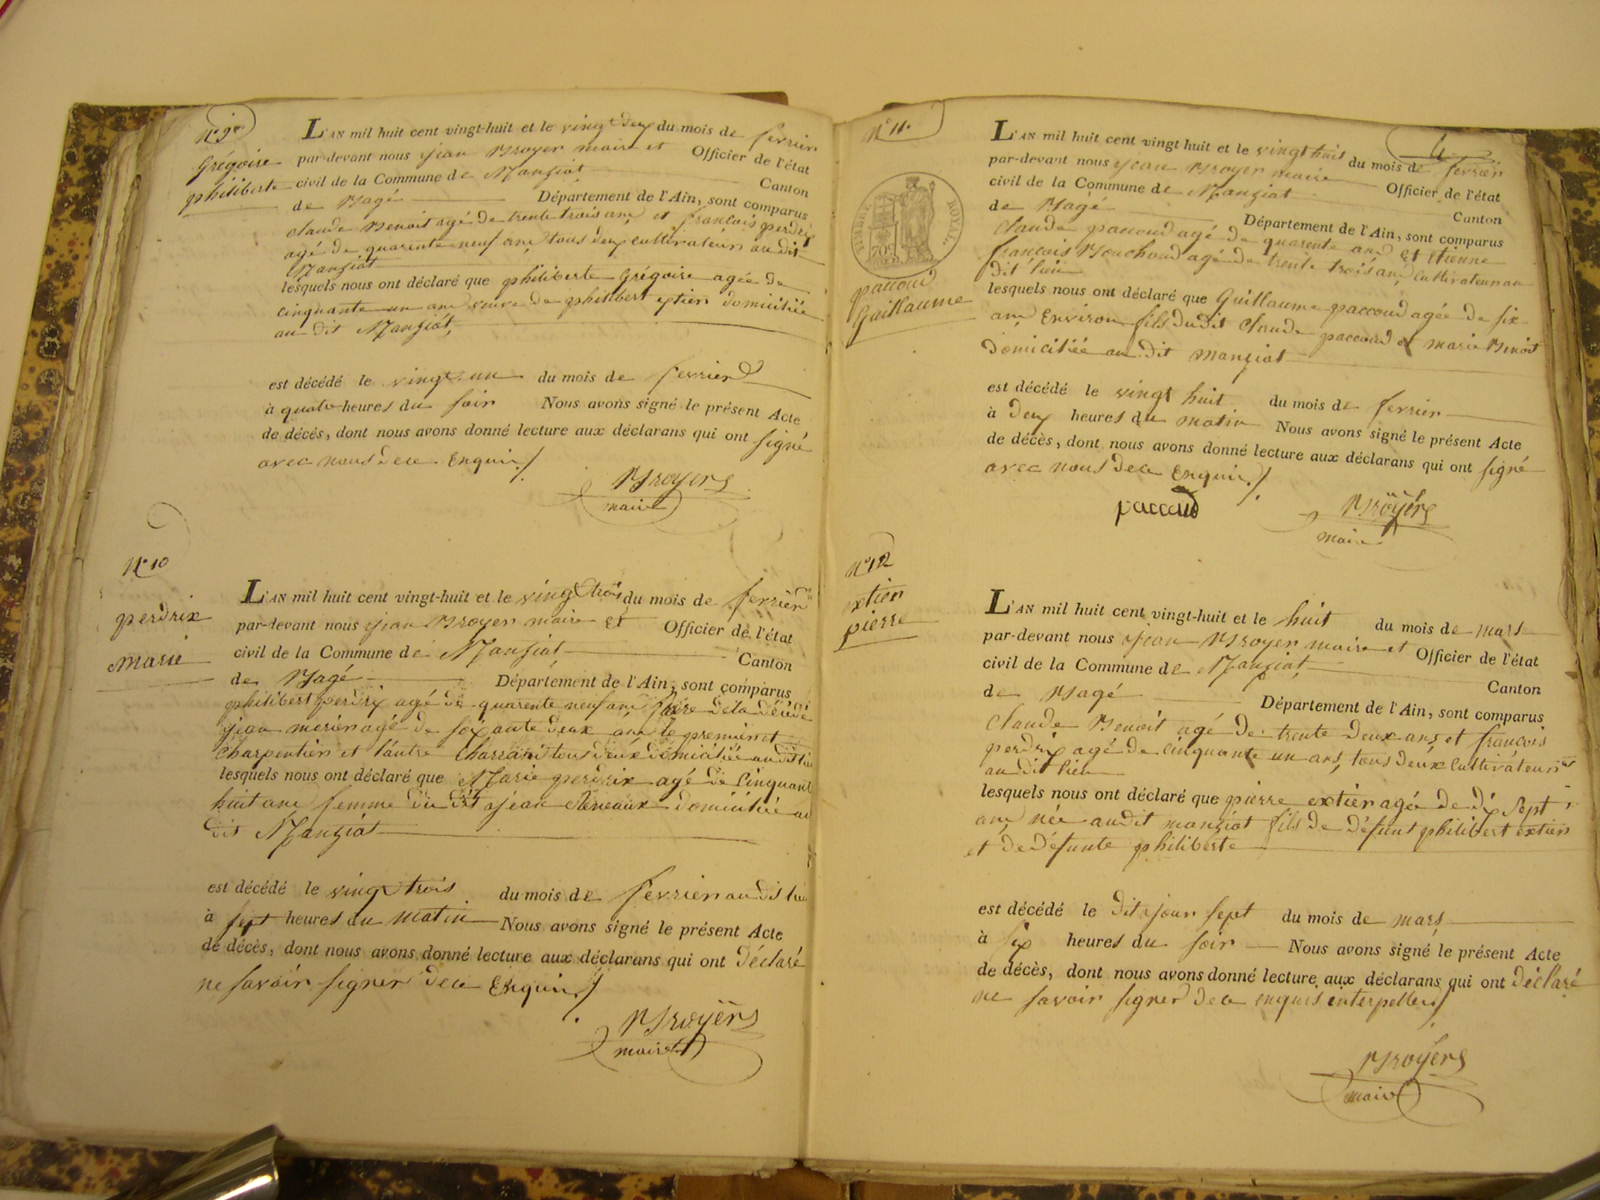 N° 9
Grégoire
philiberte
L'AN mil huit cent vingt-huit et le vingt deux du mois de fevrier
par-devant nous jean Broyer maire et Officier de l'état
civil de la Commune de Manziat Canton
de Bagé Département de l'Ain, sont comparus
claude Benoit agé de trente trois ans et françois perdrix
agé de quarente neuf ans tous deux cultivateurs au dit
Manziat
lesquels nous ont déclaré que philiberte Grégoire agée de
cinquante un ans veuve de philibert extier domiciliée
au dit Manziat
est décédé le vingt un du mois de fevrier
à quatre heures du soir Nous avons signé le présent Acte
de décès, dont nous avons donné lecture aux déclarans qui ont signé
avec nous de ce Enquis ./
Broyer
maire
N° 10
perdrix
marie
L'AN mil huit cent vingt-huit et le vingt trois du mois de fevrier
par-devant nous jean Broyer maire et Officier de l'état
civil de la Commune de Manziat Canton
de Bagé Département de l'Ain, sont comparus
philibert perdrix agé de quarente neuf ans frère de la décédé
jean agé de soixante deux ans le premier et
charpentier et l'autre tous deux domiciliée au dit lieu
lesquels nous ont déclaré que Marie perdrix agé de Cinquant
huit ans femme du dit jean domiciliée au
dit Manziat
est décédé le vingt trois du mois de fevrier au dit lieu
à sept heures du matin Nous avons signé le présent Acte
de décès, dont nous avons donné lecture aux déclarans qui ont déclaré
ne savoir signer de ce Enquis ./
Broyer
maire
4
N° 11
TIMBRE ROYAL
paccoud
Guillaume
L'AN mil huit cent vingt huit et le vingt huit du mois de fevrier
par-devant nous jean Broyer maire Officier de l'état
civil de la Commune de Manziat Canton
de Bagé Département de l'Ain, sont comparus
Claude paccoud agé de quarente ans et Etienne
françois Bouchoud agé de trente trois ans cultivateur au
dit lieu
lesquels nous ont déclaré que Guillaume paccoud agée de six
ans Environ fils du dit Claude paccoud et marie Benoit
domiciliée au dit manziat
est décédé le vingt huit du mois de fevrier
à deux heures du matin Nous avons signé le présent Acte
de décès, dont nous avons donné lecture aux déclarans qui ont signé
avec nous de ce Enquis ./
paccoud
Broyer
maire
N° 12
extier
pierre
L'AN mil huit cent vingt-huit et le huit du mois de mars
par-devant nous jean Broyer maire et Officier de l'état
civil de la Commune de Manziat Canton
de Bagé Département de l'Ain, sont comparus
Claude Benoit agé de trente deux ans et françois
perdrix agé de cinquante un ans, tous deux Cultivateurs
au dit lieu
lesquels nous ont déclaré que pierre extier agée de dix sept
ans née au dit manziat fils de défunt philibert extier
et de défunte philiberte
est décédé le dit jour sept du mois de mars
à six heures du soir Nous avons signé le présent Acte
de décès, dont nous avons donné lecture aux déclarans qui ont déclaré
ne savoir signer de ce enquis interpellés ./
Broyer
maire